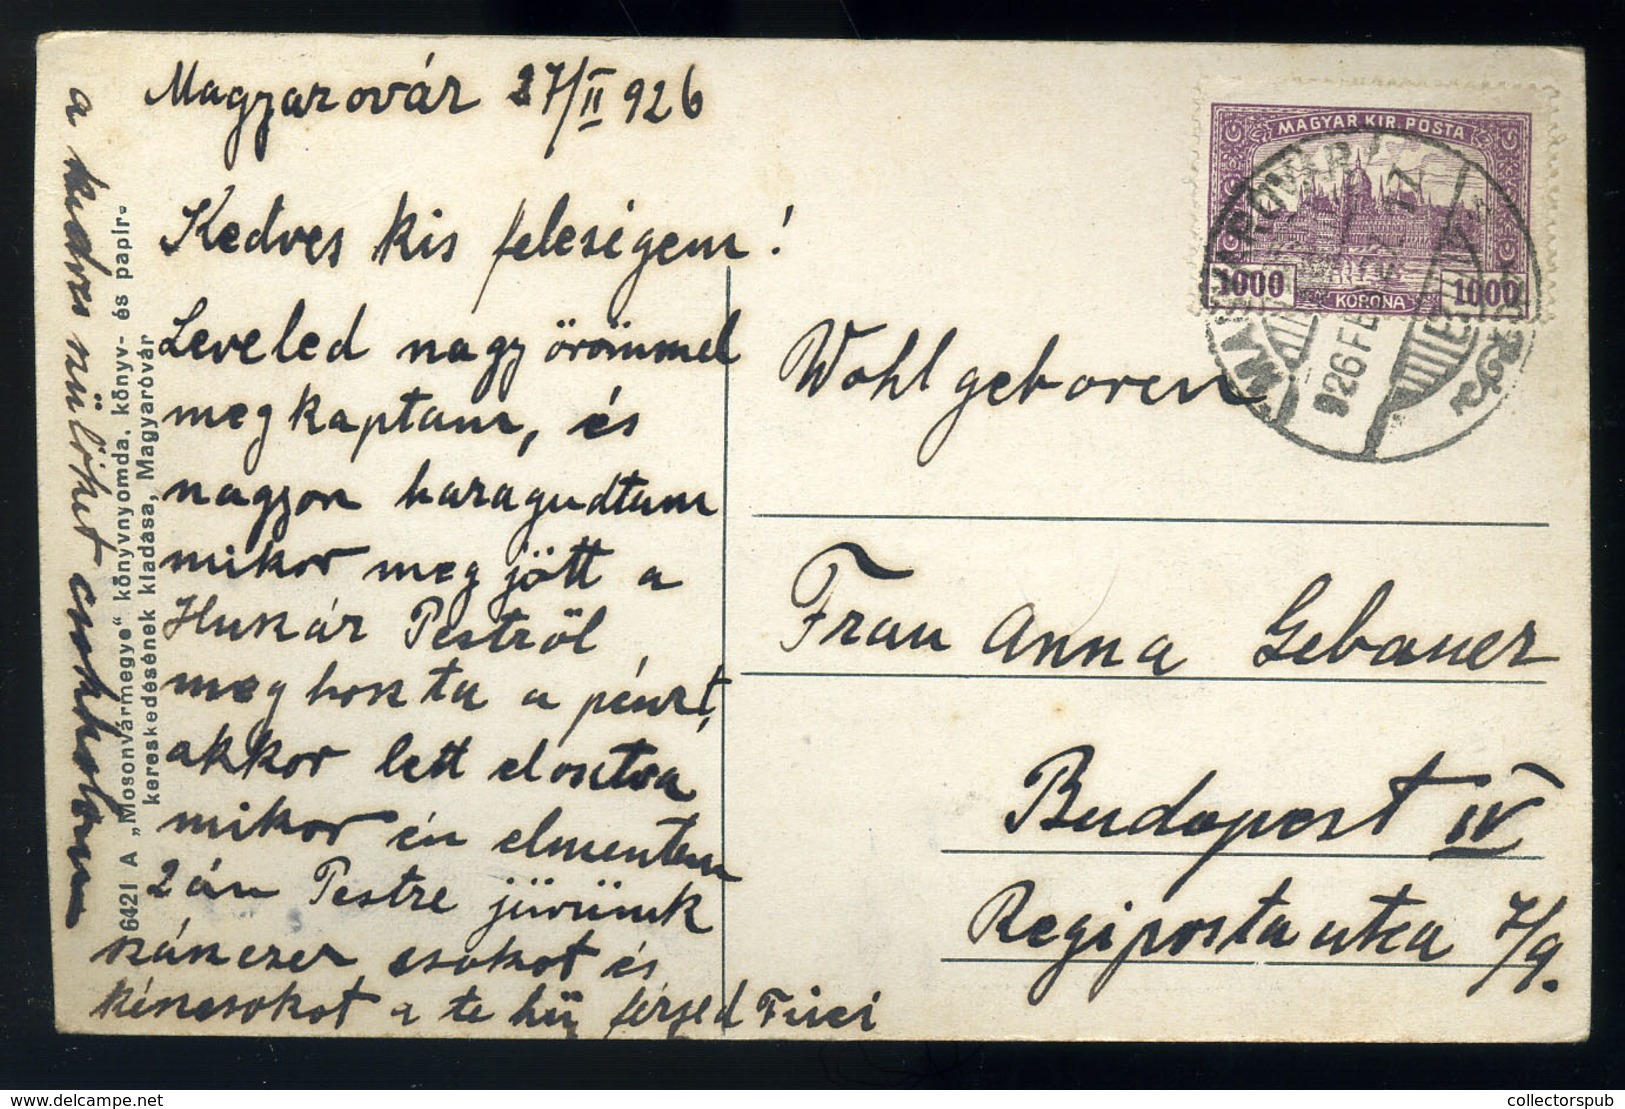 Magyarovár 27/II 926
Kedves kis feleségem!
Leveled nagy örömmel
megkaptam, és
nagyon haragudtam
mikor meg jött a
Huszár Pestről
meg hozta a pénzt,
akkor lett elosztva
mikor én elmentem
2án Pestre jövünk
százezer csokot és
a te hű férjed Frici
a kedves szülőket csokholom
6421 A „Mosonvármegye“ könyvnyomda, könyv- és papir-
kereskedésének kiadasa, Magyaróvár
MAGYAR KIR. POSTA
1000 KORONA 1000
926 FEB
Wohlgeboren
Frau Anna Gebauer
Budapest IV
Regiposta utca 7/9.
collectorspub